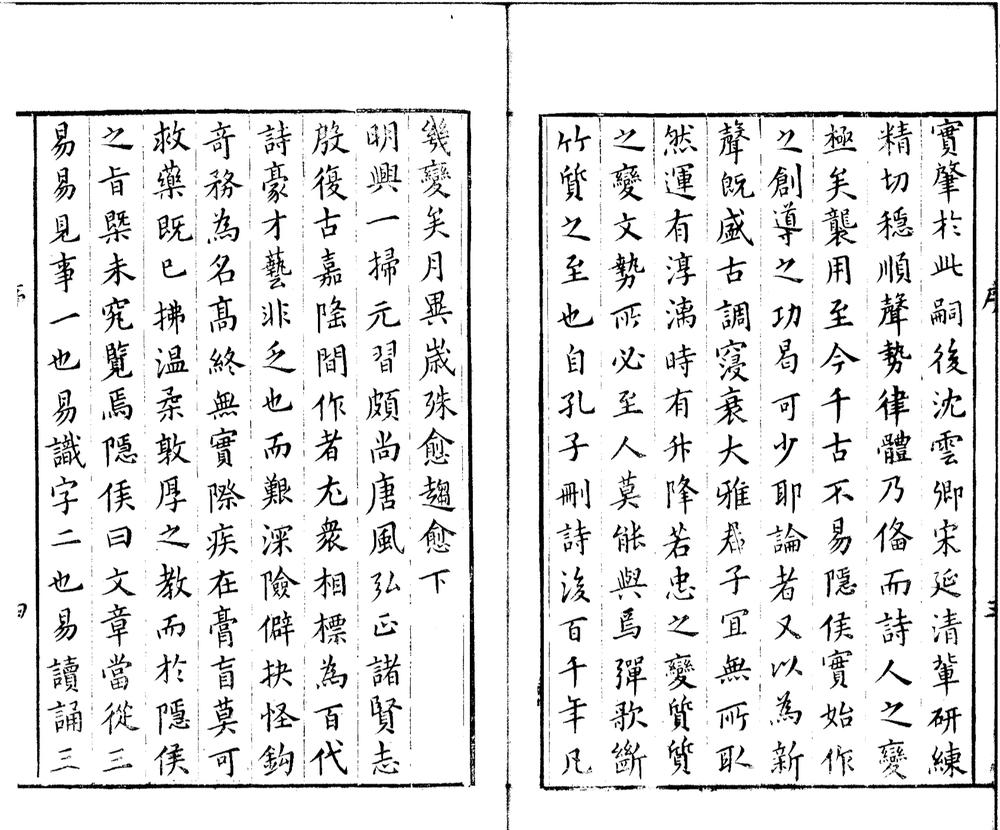 實肇於此嗣後沈雲卿宋延清輩研練
精切穩順聲勢律體乃俻而詩人之變
極矣襲用至今千古不易隱侯實始作
之創導之功曷可少耶論者又以為新
聲既盛古調寖衰大雅君子宜無所取
然運有淳漓時有升降若忠之變質質
之變文勢所必至人莫能與焉彈歌斷
竹質之至也自孔子刪詩後百千年凡
幾變矣月異歲殊愈趨愈下
明興一掃元習頗尚唐風弘正諸賢志
殷復古嘉隆間作者尤衆相標為百代
詩豪才藝非乏也而艱深險僻抉怪鈎
奇務為名髙終無實際疾在膏肓莫可
救藥既已拂温柔敦厚之教而於隱侯
之旨槩未究覽焉隱侯曰文章當從三
易易見事一也易識字二也易讀誦三